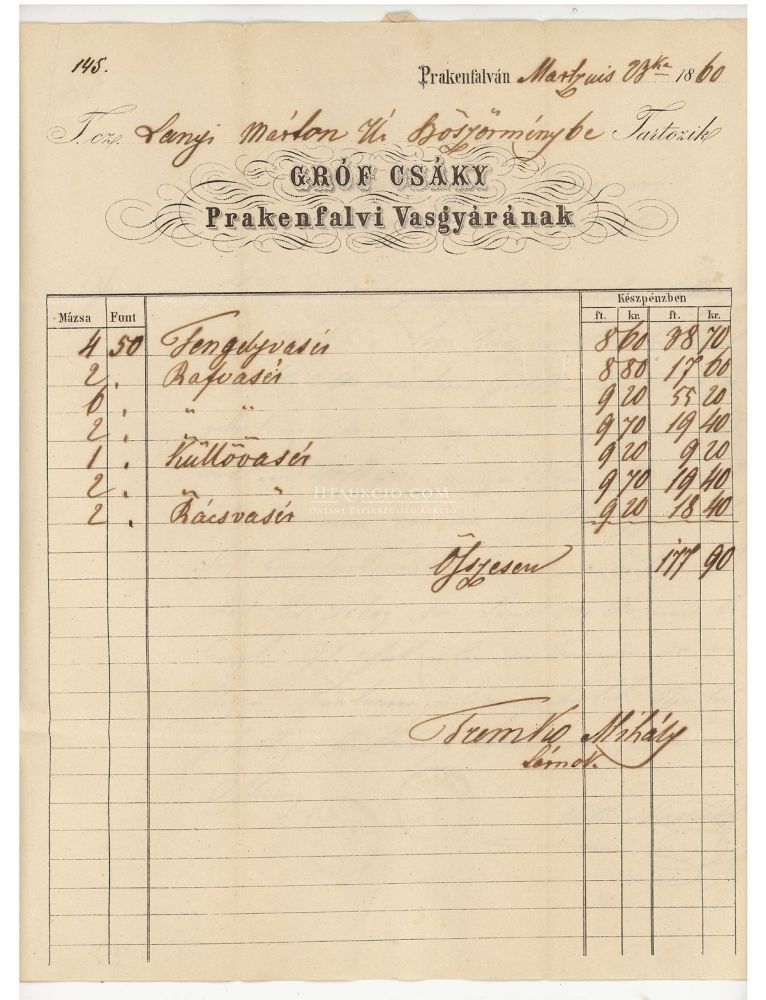 145.
Prakenfalván Martzius 23ka 1860
T. cz. Lanyi Márton Úr Böszörménybe Tartozik
GRÓF CSÁKY
Prakenfalvi Vasgyárának
Mázsa Font Készpénzben
ft. kr. ft. kr.
4 50 Tengelyvasér 8 60 38 70
2 . Rafvasér 8 80 17 60
6 . " " 9 20 55 20
2 . " " 9 70 19 40
1 . Küllővasér 9 20 9 20
2 . " " 9 70 19 40
2 . Rácsvasér 9 20 18 40
HTAUKCIO.COM
ONLINE PAPÍRRÉGISÉG AUKCIÓ
Öszesen 177 90
Mihály